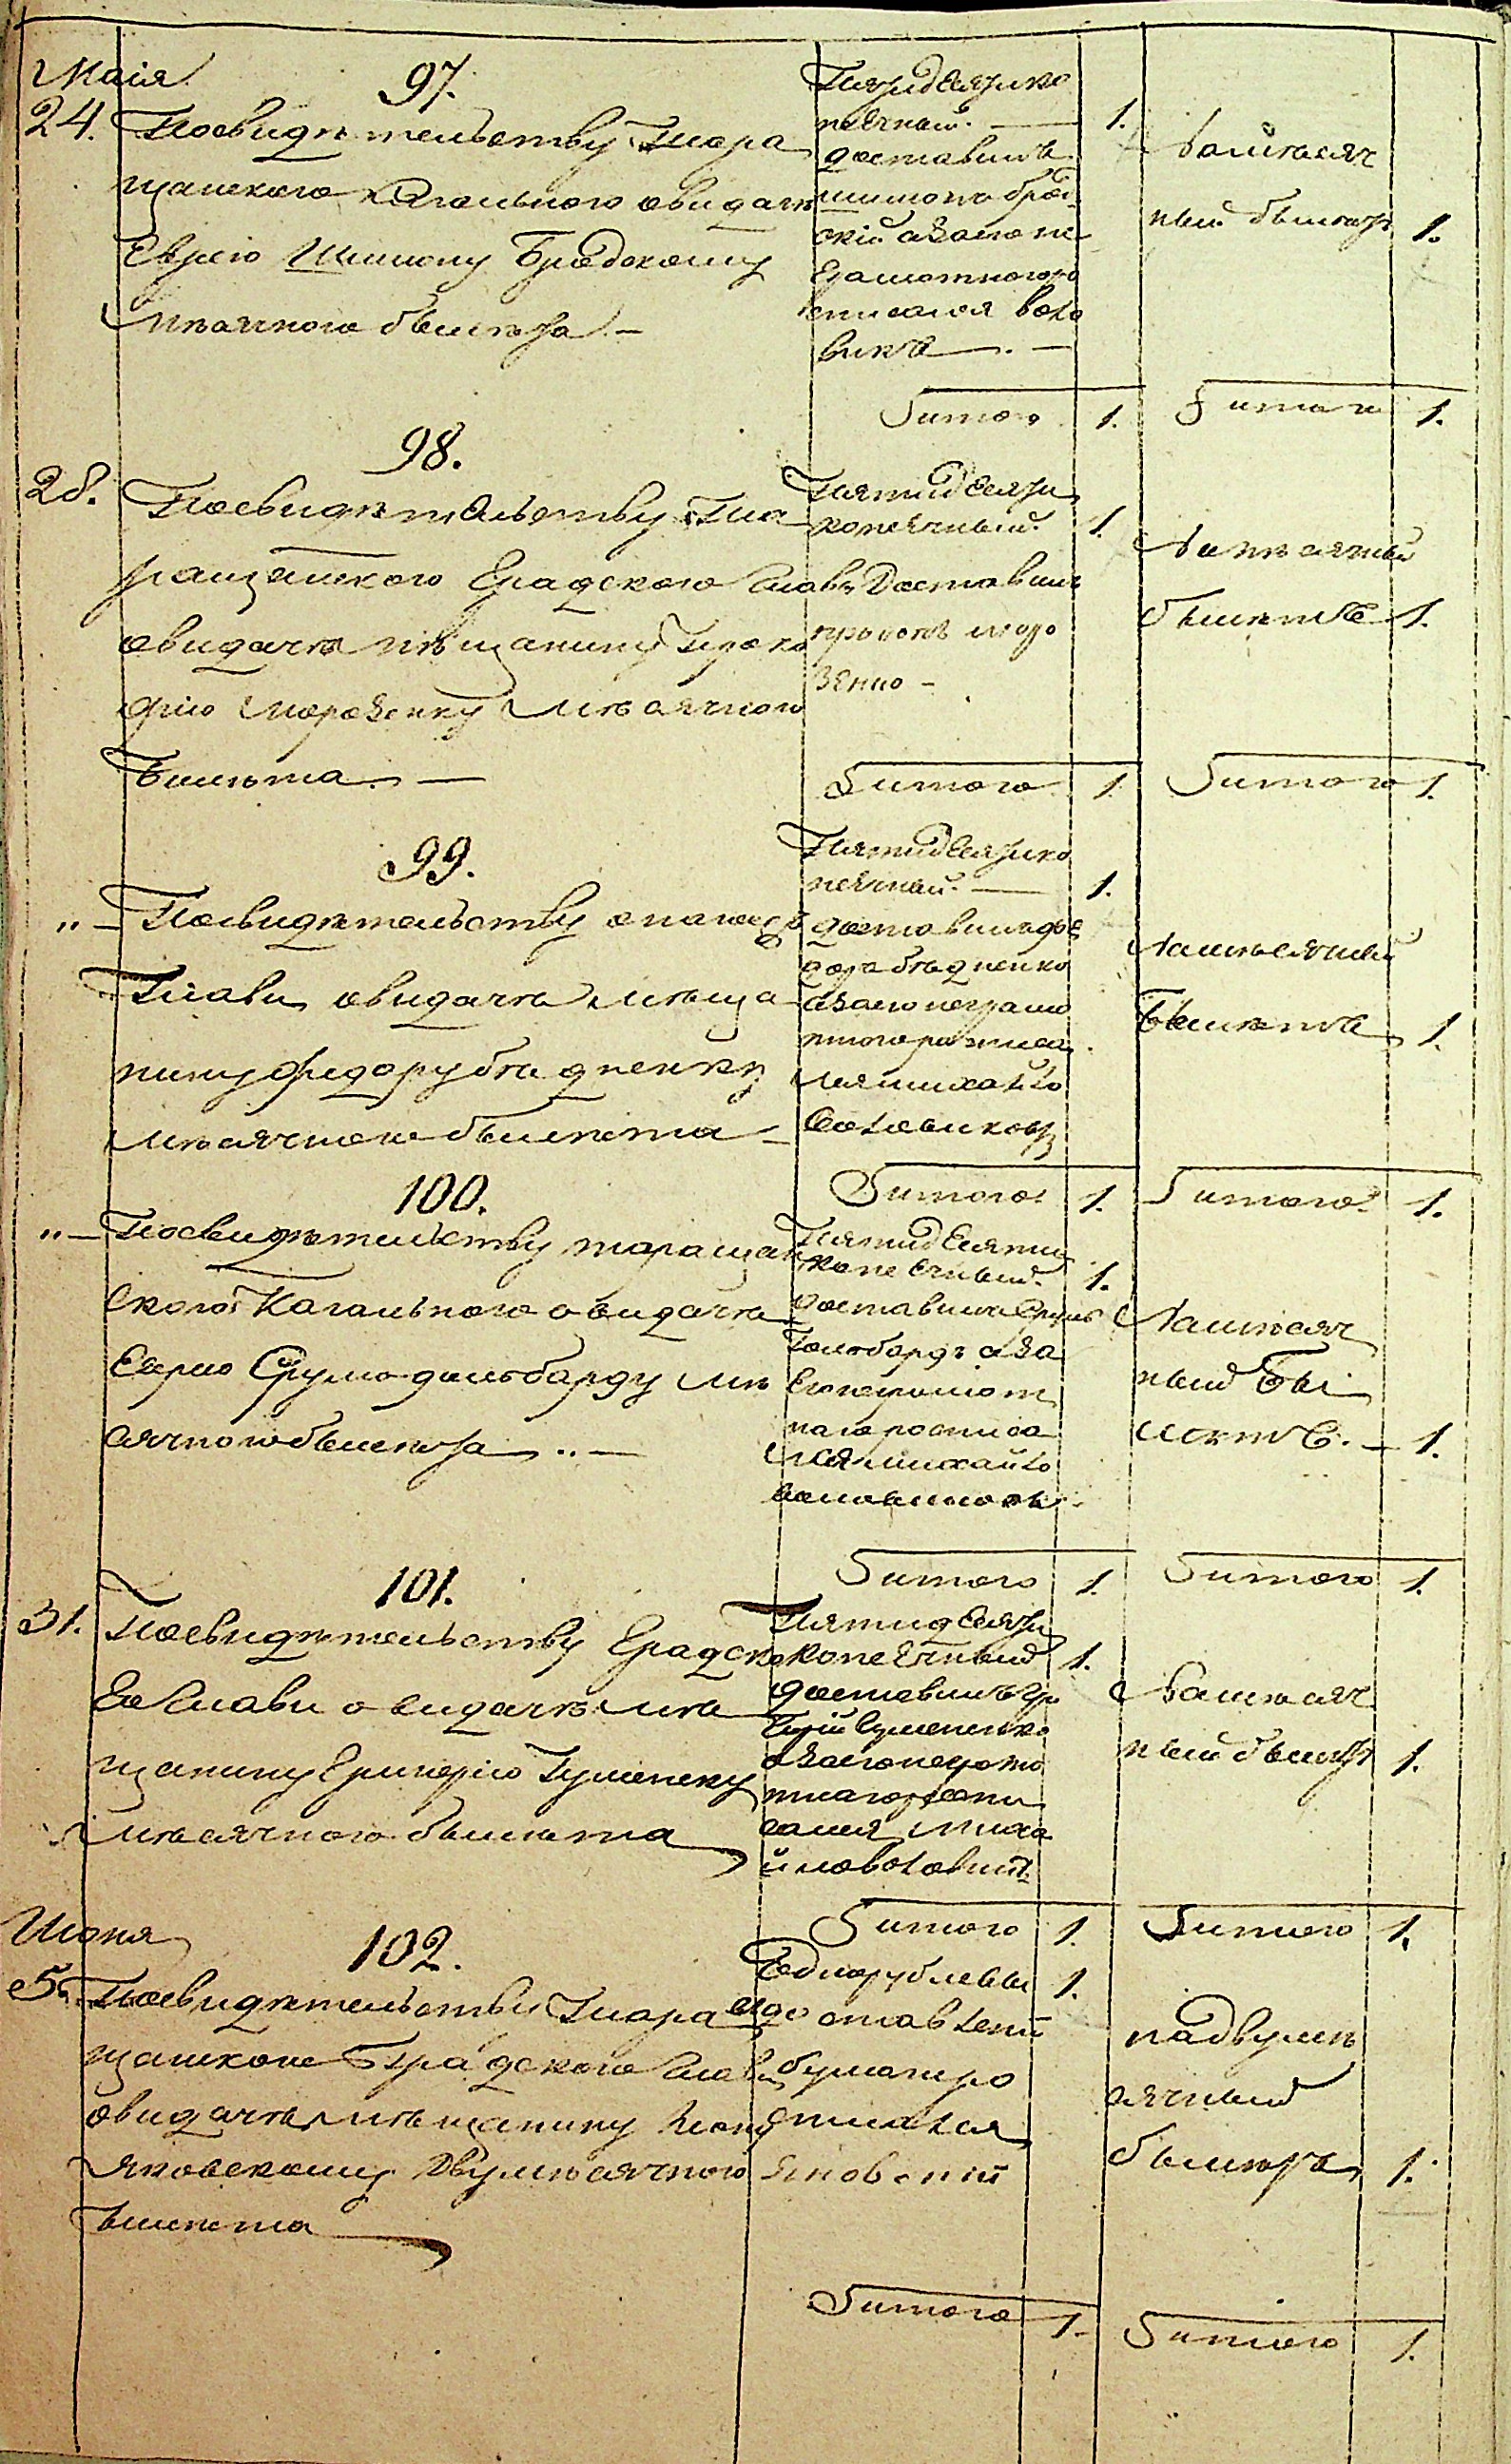 Маія
97.
24. По свидѣтельству Тара
щанского Кагального овидачѣ
Еврею Шимону Бродскому
мѣсячного билѣта. —
Пятидесятико
пеечный. — 1.
доставилъ
шимонъ брод
скій азаего не
грамотного ро
списался воло
викъ —. —
Намѣсяч
ный билетъ 1.
Итого 1. Итого 1.
98.
28. По свидѣтельству Та
ращанского Градского Глави
овидачѣ мѣщанину Проко
фію Морозенку мѣсячного
билѣта. —
Пятидесяти
копеечный. 1.
Доставилъ
моро
зенко —
Намѣсячный
билѣтъ 1.
Итого 1. Итого 1.
99.
„ — По свидѣтельству оногожъ
Глави овидачѣ мѣща
нину Федору бѣдненку
мѣсячного билѣта —
Пятидесятико
пеечный. — 1.
доставилъ фе
доръ бѣдненко
азаего неграмо
тного росписал
ся михайло
Воловиковъ
Намѣсячный
билѣтъ 1.
Итого 1. Итого 1.
100.
„ — По свидѣтельству таращан
ского Кагального овидачѣ
Еврею Сруму гольбарду мѣ
сячного билета „ —
Пятидесяти
копеечный. 1.
доставилъ Срумъ
Гольбардъ аза
его неграмот
наго росписа
лся михайло
воловиковъ
Намѣсяч
ный би
летъ. — 1.
Итого 1. Итого 1.
101.
31. По свидѣтельству Градско
го Глави овидачѣ мѣ
щанину Григорію Гуменску
мѣсячного билѣта
Пятидесяти
копеечный 1.
доставилъ гри
горій Гуменско
азаего негромо
тнаго роспи
сался миха
йло воловикъ
Намѣсяч
ный билетъ 1.
Итого 1. Итого 1.
Июня
102.
5. По свидѣтельству Тара
щанского Градского Глави
овидачѣ мѣщанину
Яновскому двумѣсячного
билѣта
Однорублевы 1.
й доставленій
бумаги ро
списался
Яновскій
надвумѣ
сячный
билетъ 1.
Итого 1. Итого 1.